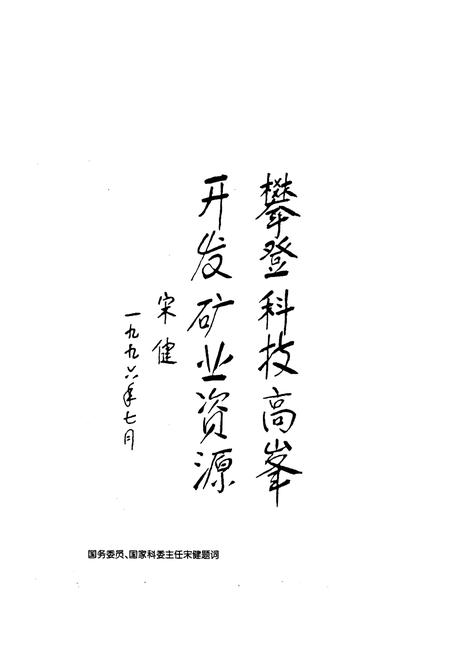 攀登科技高峯
开发矿业資源
宋健
一九九六年七月
国务委员、国家科委主任宋健题词